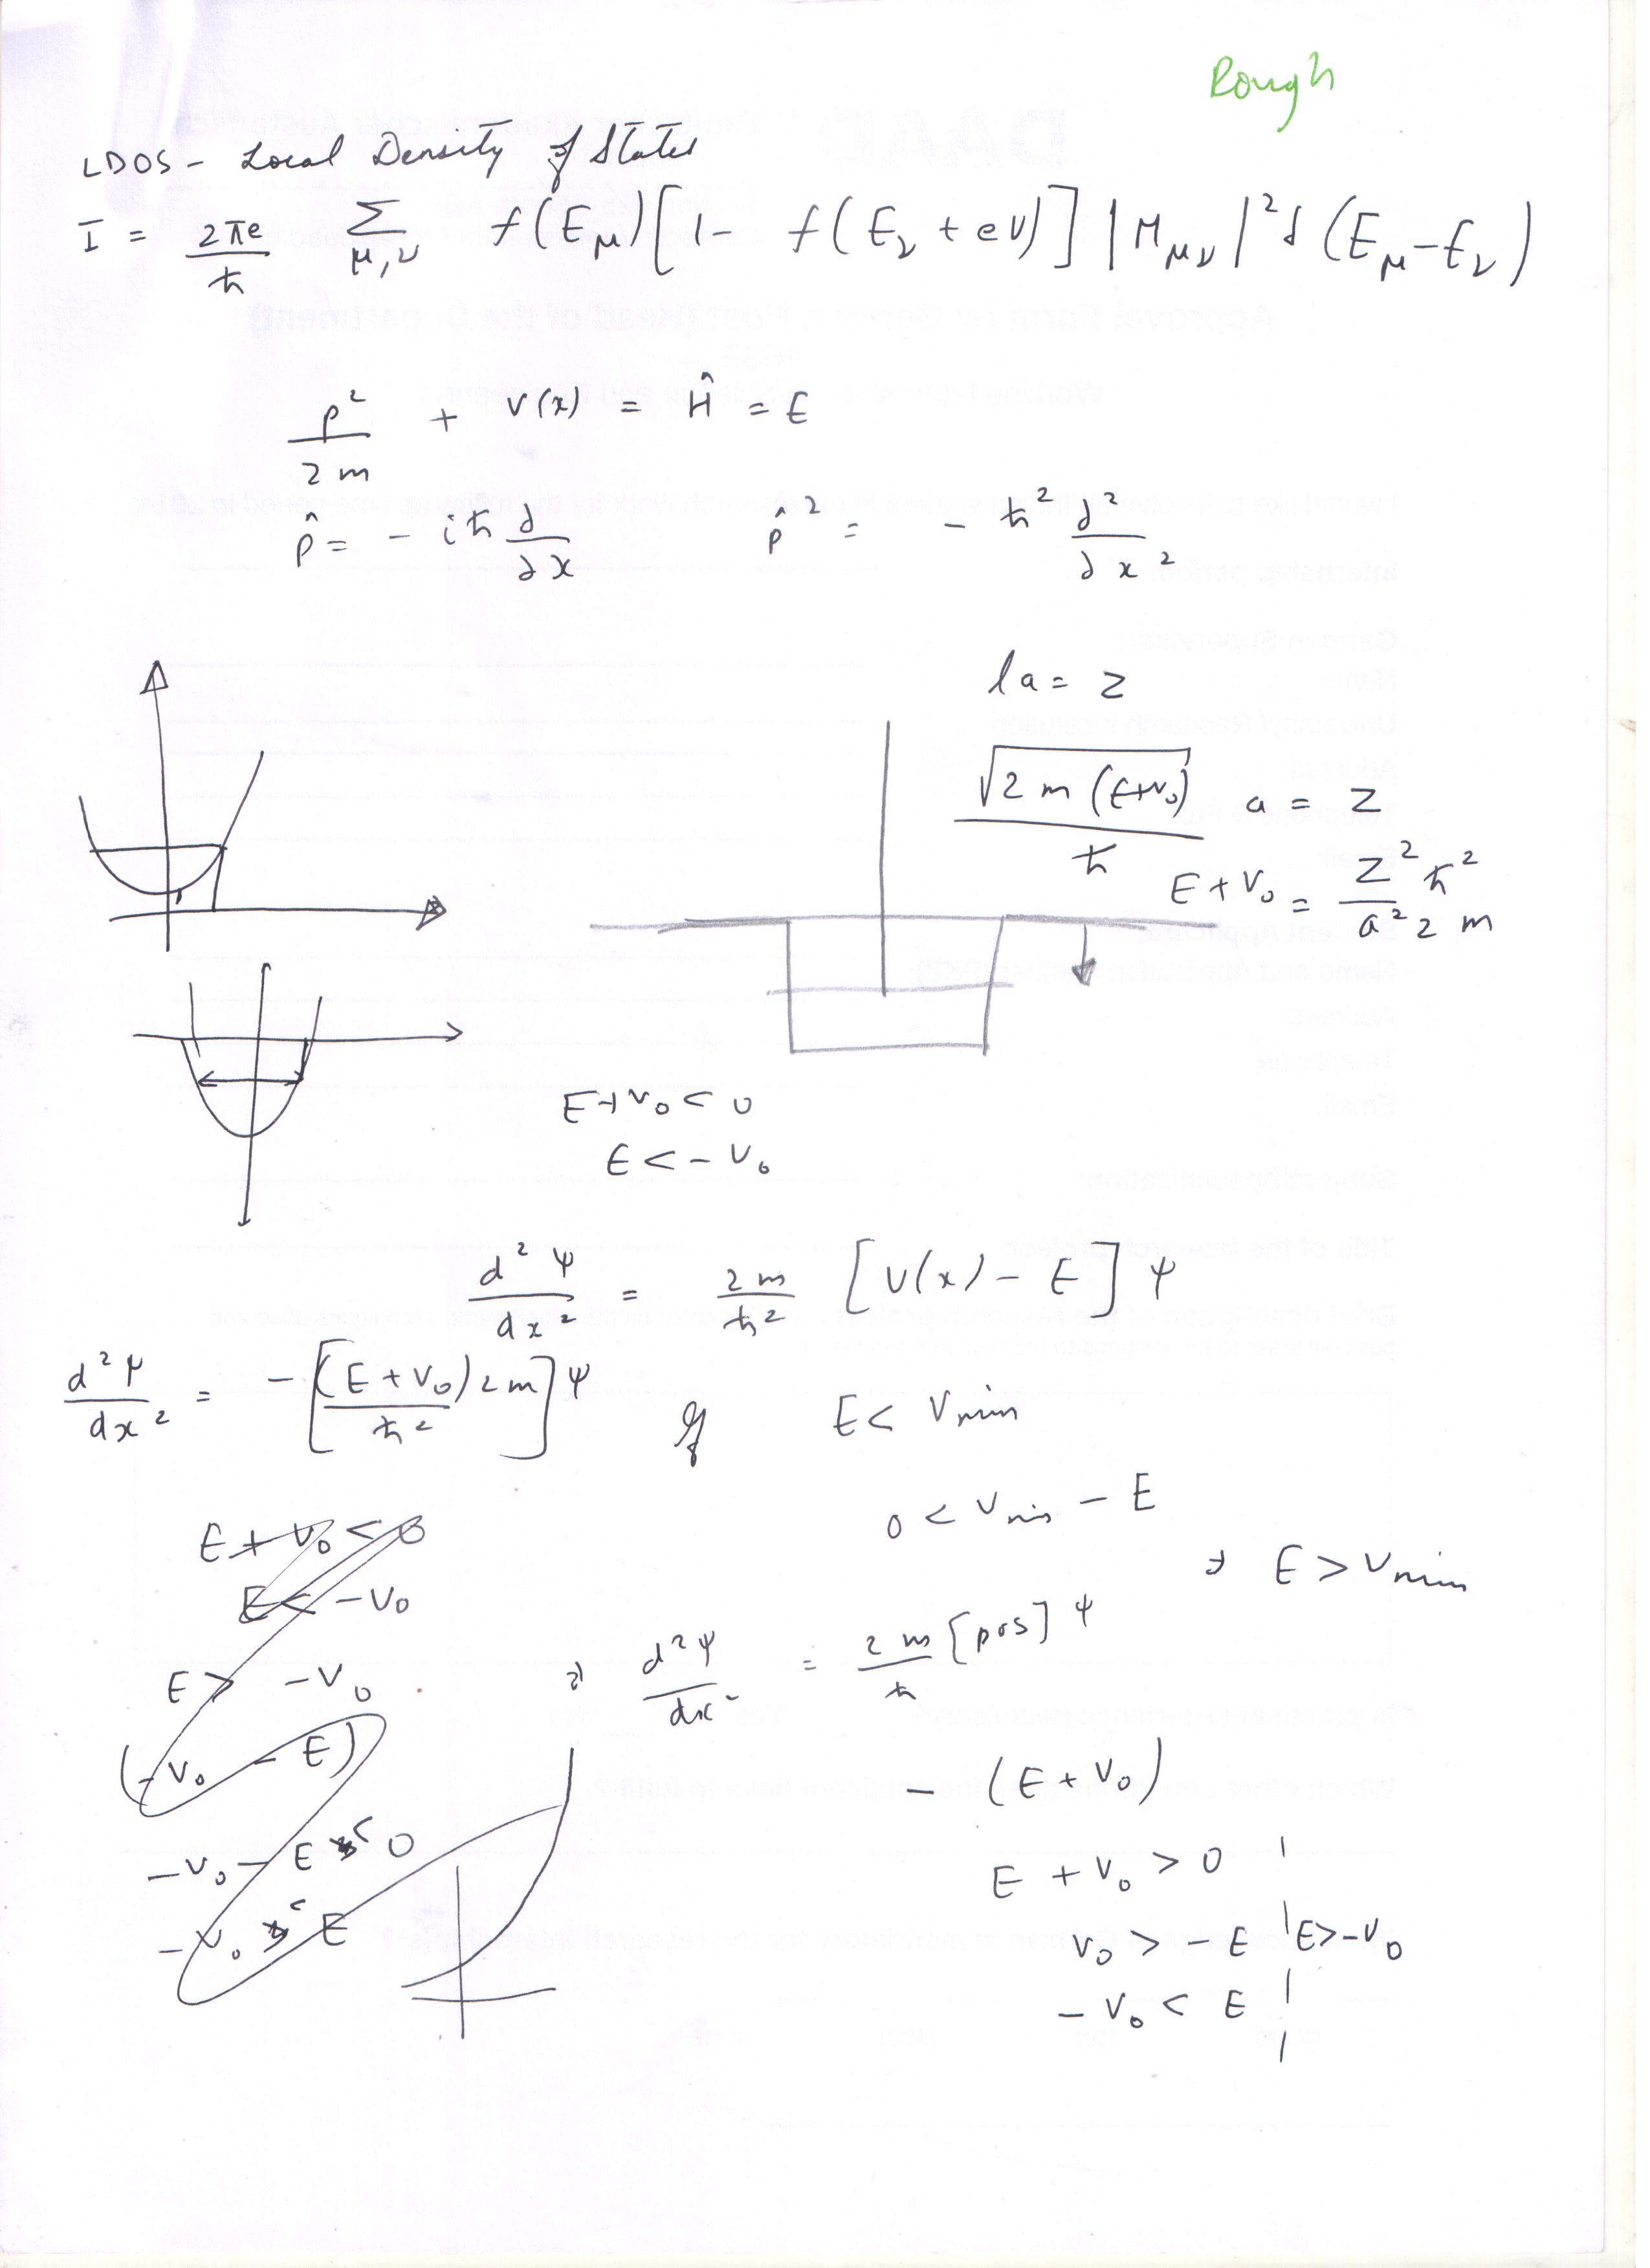 Rough
LDOS - Local Density of States
I = 2πe/ħ Σ_{μ,ν} f(E_μ) [1 - f(E_ν + eV)] |M_{μν}|² δ(E_μ - E_ν)
p²/2m + V(x) = Ĥ = E
p̂ = - iħ ∂/∂x    p̂² = - ħ² ∂²/∂x²
la = z
√(2m(E+V₀))/ħ a = z
E + V₀ = z²ħ²/a²2m
E + V₀ < 0
E < - V₀
d²ψ/dx² = 2m/ħ² [V(x) - E] ψ
d²ψ/dx² = - [(E + V₀)2m/ħ²] ψ
If E < Vmin
0 < Vmin - E
⇒ E > Vmin
⇒ d²ψ/dx² = 2m/ħ [pos] ψ
E + V₀ < 0
E < - V₀
E > - V₀
(- V₀ - E)
- V₀ - E < 0
- V₀ < E
- (E + V₀)
E + V₀ > 0
V₀ > - E | E > - V₀
- V₀ < E